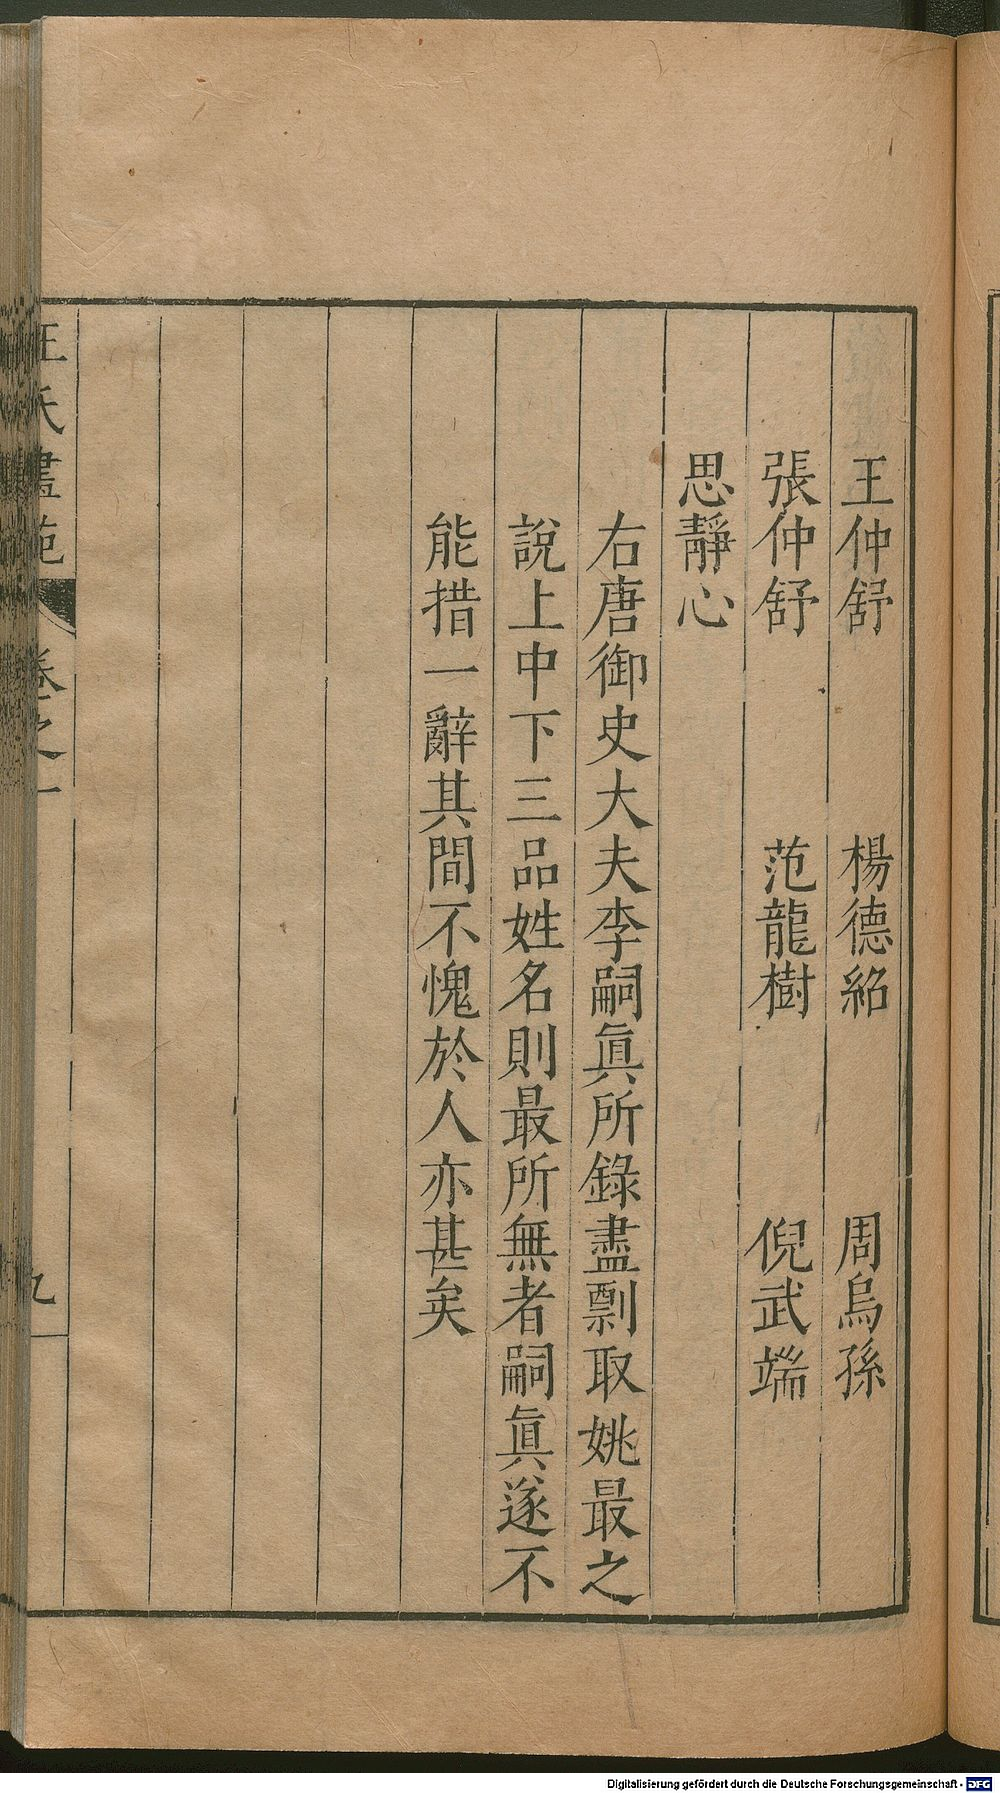 王仲舒 楊德紹 周烏孫
張仲舒 范龍樹 倪武端
思靜心
右唐御史大夫李嗣眞所錄盡剽取姚最之
說上中下三品姓名則最所無者嗣眞遂不
能措一辭其間不愧於人亦甚矣
王氏畫苑 卷之一 九
Digitalisierung gefördert durch die Deutsche Forschungsgemeinschaft - DFG